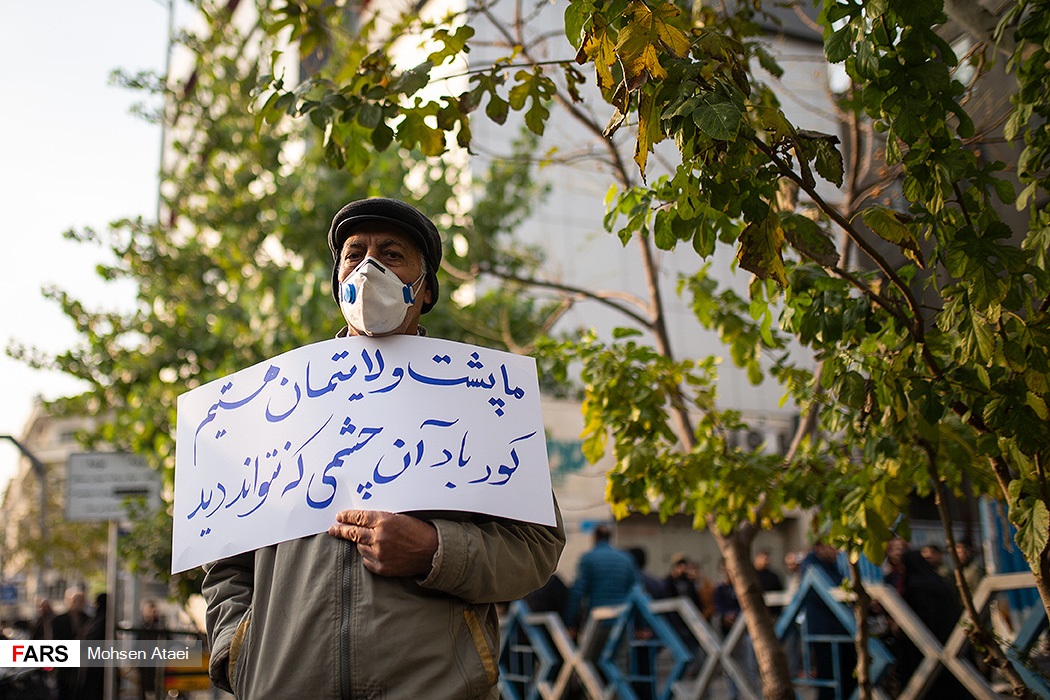 ما پشت ولایتمان هستیم
کور باد آن چشمی که نتواند دید
FARS
Mohsen Ataei